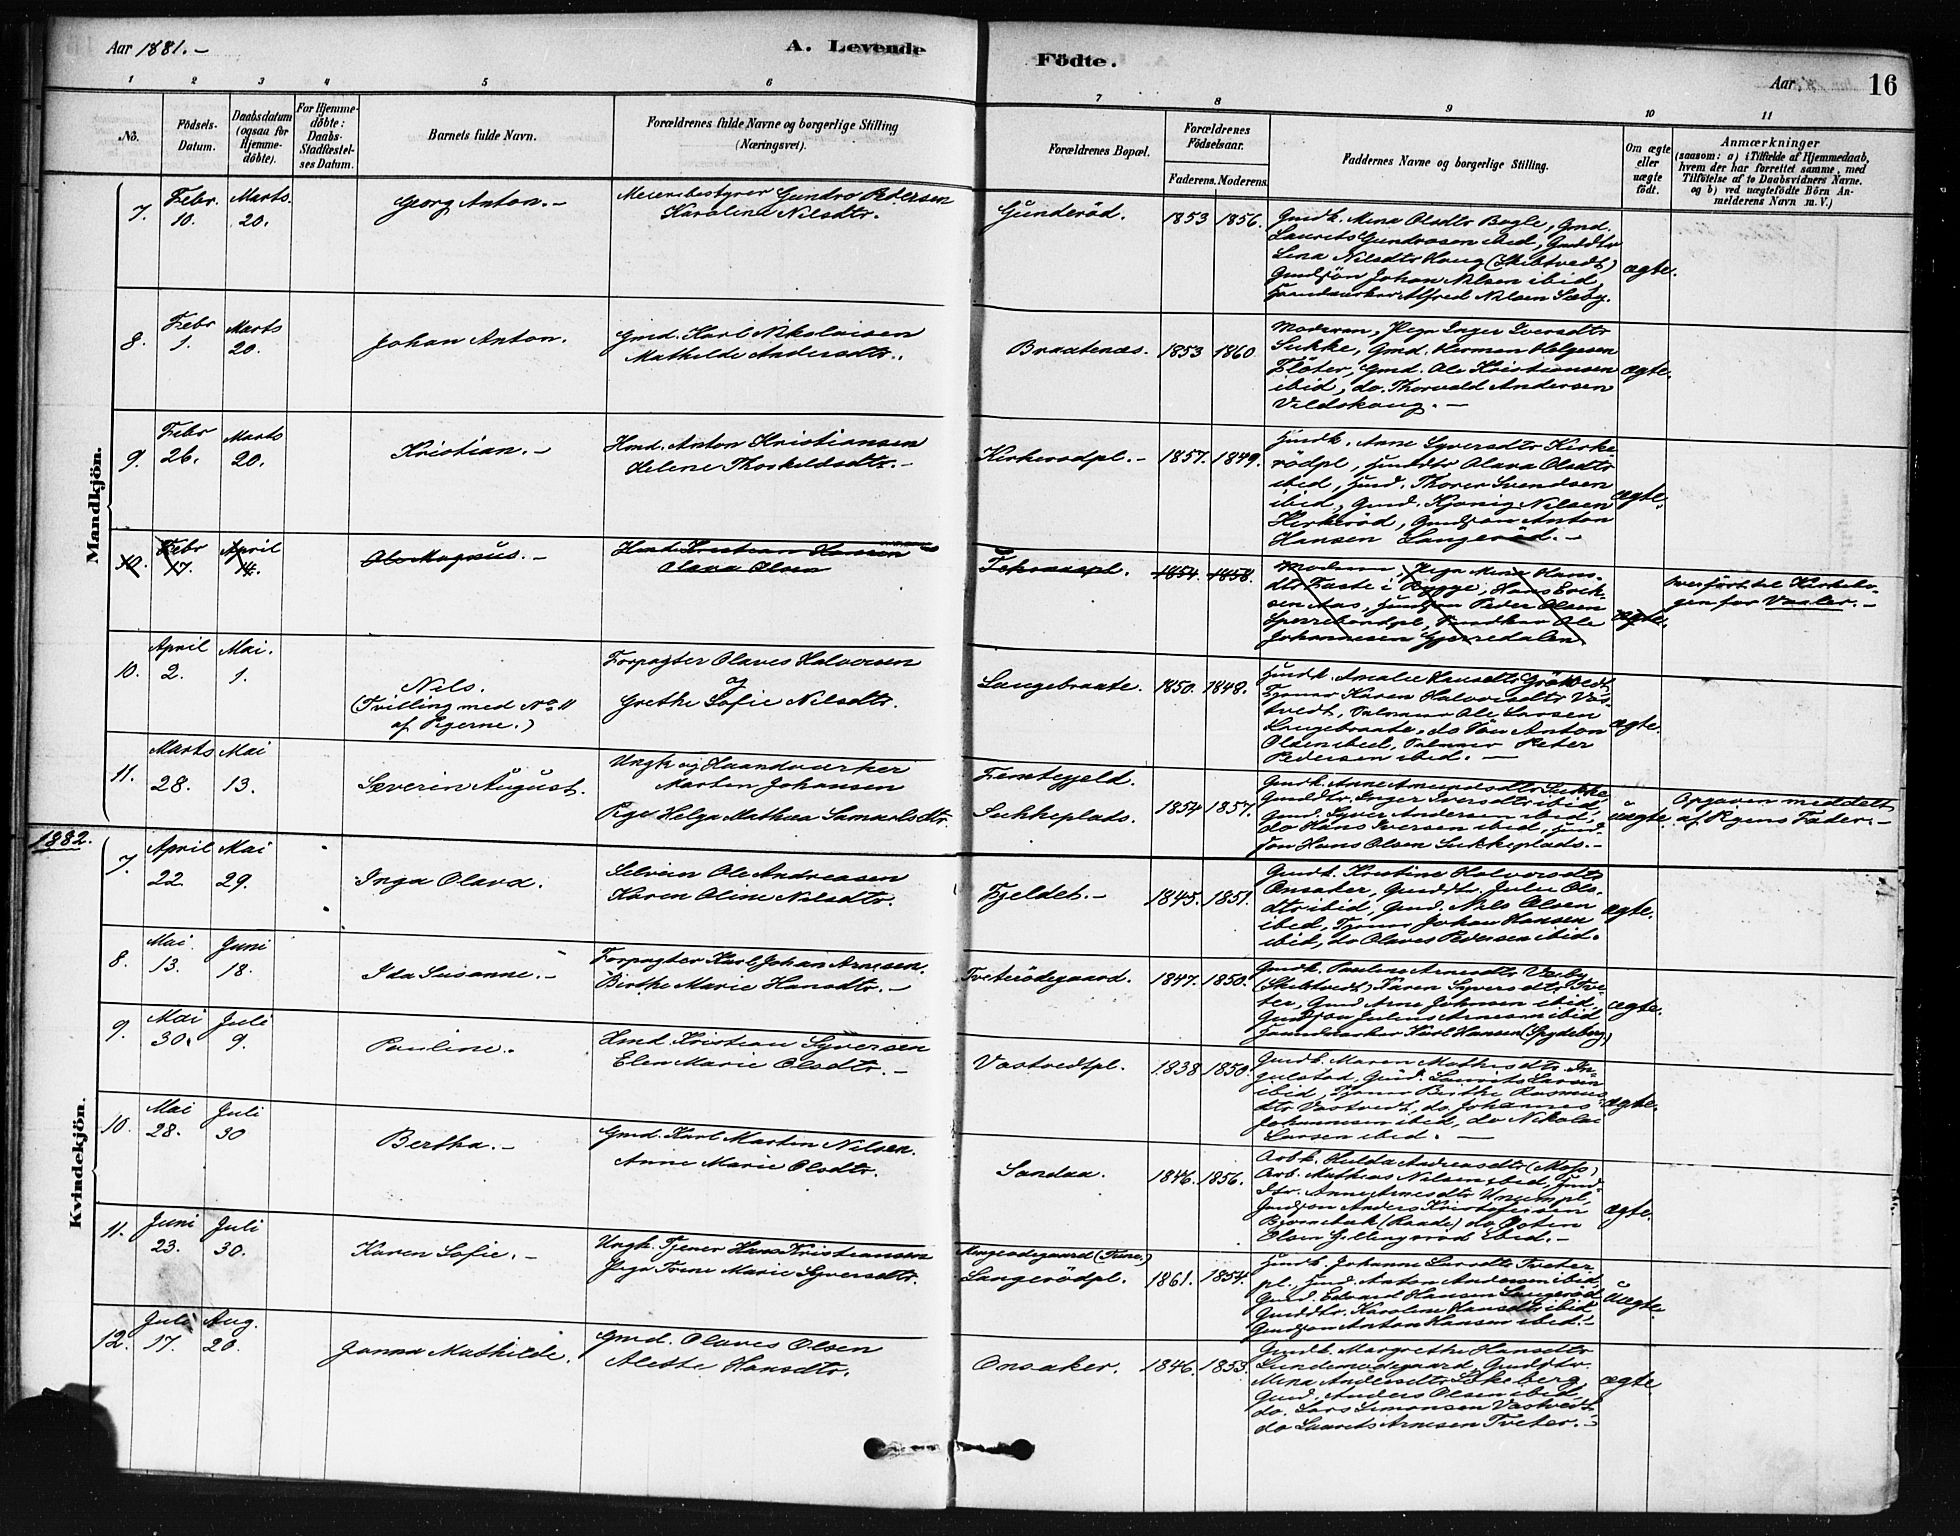 Aar 1881. –
A. Levende
Födte.
Aar
16
1 2 3 4 5 6 7 8 9 10 11
No.
Födsels-Datum.
Daabsdatum (ogsaa for Hjemme-döbte).
For Hjemme-döbte: Daabs-Stadfæstel-ses Datum.
Barnets fulde Navn.
Forældrenes fulde Navne og borgerlige Stilling (Næringsvei).
Forældrenes Bopæl.
Forældrenes Födselsaar.
Faderens. Moderens.
Faddernes Navne og borgerlige Stilling.
Om ægte eller uægte födt.
Anmærkninger
(saasom: a) i Tilfælde af Hjemmedaab, hvem der har forrettet samme, med Tilföielse af to Daabsvidners Navne. og b) ved uægtefödte Börn An-melderens Navn m. V.)
Mandkjön.
7. Febr. 10. Marts 20. Georg Anton. –
Meieribestyrer Gundro Pedersen
Karoline Nilsdtr.
Gunderöd. 1853 1856.
Gmdk. Mina Olsdtr Bogle, Gmd.
Laurits Gundrosen ibid, Gmddtr
Lina Nilsdtr Haug (Skibtvedt)
Gmdsön Johan Nilsen ibid
Haandværker Alfred Nilsen Sæby.
ægte.
8. Febr 1. Marts 20. Johan Anton.
Gmd. Karl Nikolaisen
Mathilde Andersdtr.
Braatenæs. 1853 1860
Moderen, Pige Inger Iversdtr
Sukke, Gmd. Herman Helgesen
Flöter, Gmd. Ole Kristiansen
ibid, do. Thorvald Andersen
Vildskaug. –
ægte.
9. Febr 26. Marts 20. Kristian. –
Hmd. Anton Kristiansen
Helene Thorkildsdtr. –
Kirkerödpl. – 1857. 1849.
Hmdk. Anne Syversdtr Kirke-
rödpl, Hmddtr Olava Olsdtr
ibid, Hmd. Thorer Svendsen
ibid, Gmd. Kjönig Nilsen
Kirkeröd, Gmdsön Anton
Hansen Langeröd. –
ægte.
10. Febr 17. April 14. Ole Magnus. –
Hmd. Kristian Hansen
Olava Olsen
1854. 1858.
Moderen, Pige Mina Hans-
dtr Faste i Rygge, Hans Erik-
sen Aas, Hmdsön Peder Olsen
Sperrebondpl, Ole
Johannesen Gjerredalen
ægte.
Overfört til Kirkebo-
gen for Vaaler. –
10. April 2. Mai. 1.
Nils.
(Tvilling med No 11
af Pigerne.)
Forpagter Olaves Halvorsen
og
Grethe Sofie Nilsdtr.
Langebraate. 1850. 1848.
Gmdk. Amalie Knusdtr Grötvedt
Tjener Karen Halvorsdtr Vas-
tvedt, Ole Larsen
Langebraate, do Sön Anton
Olsen ibid, Peter
Pedersen ibid. –
ægte.
11. Marts 28. Mai 13. Severin August.
Ungk og Haandværker
Martin Johansen
Pige Helga Mathea Samuelsdtr.
Femtegjeld.
Sukkeplads. 1854 1857.
Gmdk. Anne Amundsdtr Sukke,
Gmddtr. Inger Iversdtr ibid,
Gmd. Syver Andersen ibid,
do Hans Iversen ibid, Hmd-
sön Hans Olsen Sukkeplads. –
uægte.
Opgaven meddelt
af Pigens Fader. –
1882.
Kvindekjön.
7. April 22 Mai 29. Inga Olava.
Selveier Ole Andreasen
Karen Oline Nilsdtr.
Fjeldet. – 1845. 1851.
Gmdk. Kristine Halvorsdtr
Onsaker, Gmddtr. Julie Ols-
dtr ibid, Gmd. Nils Olsen
ibid, Tjener Johan Hansen
ibid, do Olaves Pedersen ibid.
ægte.
8. Mai 13. Juni 18. Ida Susanne. –
Forpagter Karl Johan Arnesen.
Birthe Marie Hansdtr. –
Tveterödegaard. 1847. 1850.
Gmdk. Pauline Arnesdtr
(Skibtvedt) Karen Syversdtr Tve-
ter, Gmd Arne Johnsen ibid,
Gmdsön Julius Arnesen ibid
Haandværker Karl Hansen (Spydeberg)
ægte.
9. Mai 30. Juli 9. Pauline.
Hmd Kristian Syversen
Elen Marie Olsdtr. –
Vastvedtpl. 1838 1850.
Gmdk. Maren Mathisdtr In-
gulstad, Gmd. Laurits Larsen
ibid, Tjener Berthe Rasmus-
dtr Vastvedt, do Johannes
Johannesen ibid, do Nikolai
Larsen ibid. –
ægte.
10. Mai 28. Juli 30 Bertha. –
Gmd. Karl Martin Nilsen.
Anne Marie Olsdtr.
Sandaa. 1846. 1856.
Arbk. Hulda Andreasdtr (Moss)
Arb. Mathias Nilsen ibid, Hmd-
dtr. Anne Arnesdtr Unumpl,
Gmdsön Anders Kristofersen
Björnebæk (Raade) do Osten
Olsen Gillingsröd ibid. –
ægte.
11. Juni 23. Juli 30. Karen Sofie. –
Ungk. Tjener Hans Kristiansen
Pige Trene Marie Syversdtr.
(Tune)
Langerödpl. 1861. 1854.
Hmdk. Johanne Larsdtr Tveter
pl, Hmd. Anton Andersen ibid,
Gmd. Edvard Hansen Langeröd
Gmddtr. Karoline Hansdtr ibid
Gmdsön Anton Hansen ibid. –
Uægte.
12. Juli 17. Aug. 20. Janna Mathilde.
Gmd. Olaves Olsen
Alette Hansdtr.
Onsaker. 1846. 1853.
Gmdk. Margrethe Hansdtr
Sundemodegaard, Gmddtr.
Mina Andersdtr Lökeberg,
Gmd. Anders Olsen ibid,
do. Lars Simonsen Vastvedt
do Laurits Arnesen Tveter. –
ægte